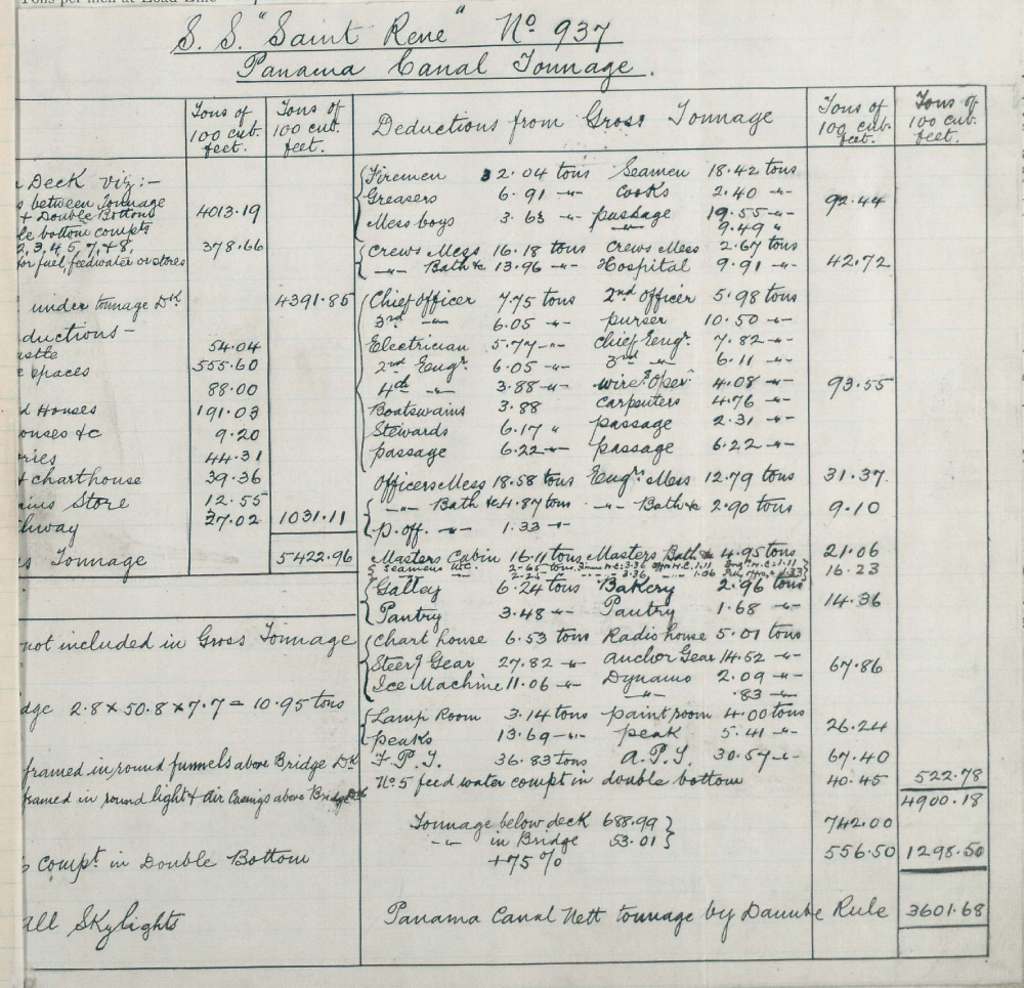 S. S. "Saint Rene" No 937
Panama Canal Tonnage.
Tons of 100 cub. feet.
Tons of 100 cub. feet.
Deck viz:-
between Tonnage
+ Double Bottoms 4013.19
bottom compts
2, 3, 4, 5, 7, & 8, 378.66
for fuel, feedwater or stores
under tonnage Dk. 4391.85
ductions -
54.04
spaces 555.60
88.00
Houses 191.03
ouses &c 9.20
ries 44.31
& charthouse 39.36
Store 12.55
hway 37.02 1031.11
Tonnage 5422.96
not included in Gross Tonnage
dge 2.8 x 50.8 x 7.7 = 10.95 tons
framed in round funnels above Bridge Dk
framed in round light & Air Casings above Bridge Dk
compt. in Double Bottom
all Skylights
Deductions from Gross Tonnage
Tons of 100 cub. feet.
Tons of 100 cub. feet.
Firemen 32.04 tons Seamen 18.42 tons
Greasers 6.91 -"- Cooks 2.40 -"- 92.44
Mess boys 3.63 -"- passage 19.55 -"-
-"- 9.49 "
Crews Mess 16.18 tons Crews Mess 2.67 tons
-"- Bath &c 13.96 -"- Hospital 9.91 -"- 42.72
Chief Officer 7.75 tons 2nd officer 5.98 tons
3rd -"- 6.05 -"- purser 10.50 -"-
Electrician 5.77 -"- Chief Engr. 7.82 -"-
2nd Engr. 6.05 -"- 3rd -"- 6.11 -"-
4th -"- 3.88 -"- wire. Oper. 4.08 -"- 93.55
Boatswains 3.88 carpenters 4.76 -"-
Stewards 6.17 " passage 2.31 -"-
passage 6.22 -"- passage 6.22 -"-
Officers Mess 18.58 tons Engrs Mess 12.79 tons 31.37
-"- Bath &c 4.87 tons -"- Bath &c 2.90 tons 9.10
P. off. -"- 1.33 -"-
Masters Cabin 16.11 tons Masters Bath &c 4.95 tons 21.06
Seamens W.C. 2.65 tons 3.36 1.11 1.11 16.23
3.36 1.36 1.33
Galley 6.24 tons Bakery 2.96 tons 14.36
Pantry 3.48 -"- Pantry 1.68 -"-
Chart house 6.53 tons Radio house 5.01 tons
Steerg Gear 27.82 -"- Anchor Gear 14.52 -"- 67.86
Ice Machine 11.06 -"- Dynamo 2.09 -"-
-"- .83 -"-
Lamp Room 3.14 tons paint room 4.00 tons
peaks 13.69 -"- peak 5.41 -"- 26.24
F. P. T. 36.83 tons A. P. T. 30.57 -"- 67.40
No 5 feed water compt in double bottom 40.45 522.78
4900.18
Tonnage below deck 688.99
-"- in Bridge 53.01 742.00
+ 75 % 556.50 1298.50
Panama Canal Nett tonnage by Danube Rule 3601.68